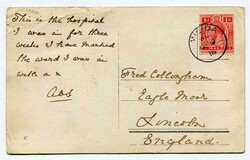 This is the hospital
I was in for three
weeks I have marked
the ward I was in
with a x
Fred Collongham
Eagle Moor
Lincoln
England.